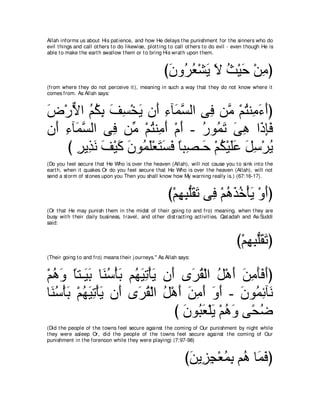 Allah informs us about His patience, and how He delays the punishment for the sinners who do
evil things and call others to do likewise, plotting to call others to do evil - even though He is
able to make the earth swallow them or to bring His wrath upon them,
(مِنْ حَيْثُ لاَ يَشْعُرُونَ)
(from where they do not perceive it), meaning in such a way that they do not know where it
comes from. As Allah says:
(أَءَمِنتُمْ مَّن فِى السَّمَآءِ أَن يَخْسِفَ بِكُمُ الاٌّرْضَ
فَإِذَا هِىَ تَمُورُ - أَمْ أَمِنتُمْ مِّن فِى السَّمَآءِ أَن
يُرْسِلَ عَلَيْكُمْ حَـصِباً فَسَتَعْلَمُونَ كَيْفَ نَذِيرِ )
(Do you feel secure that He Who is over the heaven (Allah), will not cause you to sink into the
earth, when it quakes Or do you feel secure that He Who is over the heaven (Allah), will not
send a storm of stones upon you Then you shall know how My warning really is.) (67:16-17).
(أَوْ يَأْخُذَهُمْ فِى تَقَلُّبِهِمْ)
(Or that He may punish them in the midst of their going to and fro) meaning, when they are
busy with their daily business, travel, and other distracting activities. Qatadah and As-Suddi
said:
(تَقَلُّبِهِمْ)
(Their going to and fro) means their journeys." As Allah says:
(أَفَأَمِنَ أَهْلُ الْقُرَى أَن يَأْتِيَهُم بَأْسُنَا بَيَـتًا وَهُمْ
نَآئِمُونَ - أَوَ أَمِنَ أَهْلُ الْقُرَى أَن يَأْتِيَهُمْ بَأْسُنَا
ضُحًى وَهُمْ يَلْعَبُونَ )
(Did the people of the towns feel secure against the coming of Our punishment by night while
they were asleep Or, did the people of the towns feel secure against the coming of Our
punishment in the forenoon while they were playing) (7:97-98)
(فَمَا هُم بِمُعْجِزِينَ)